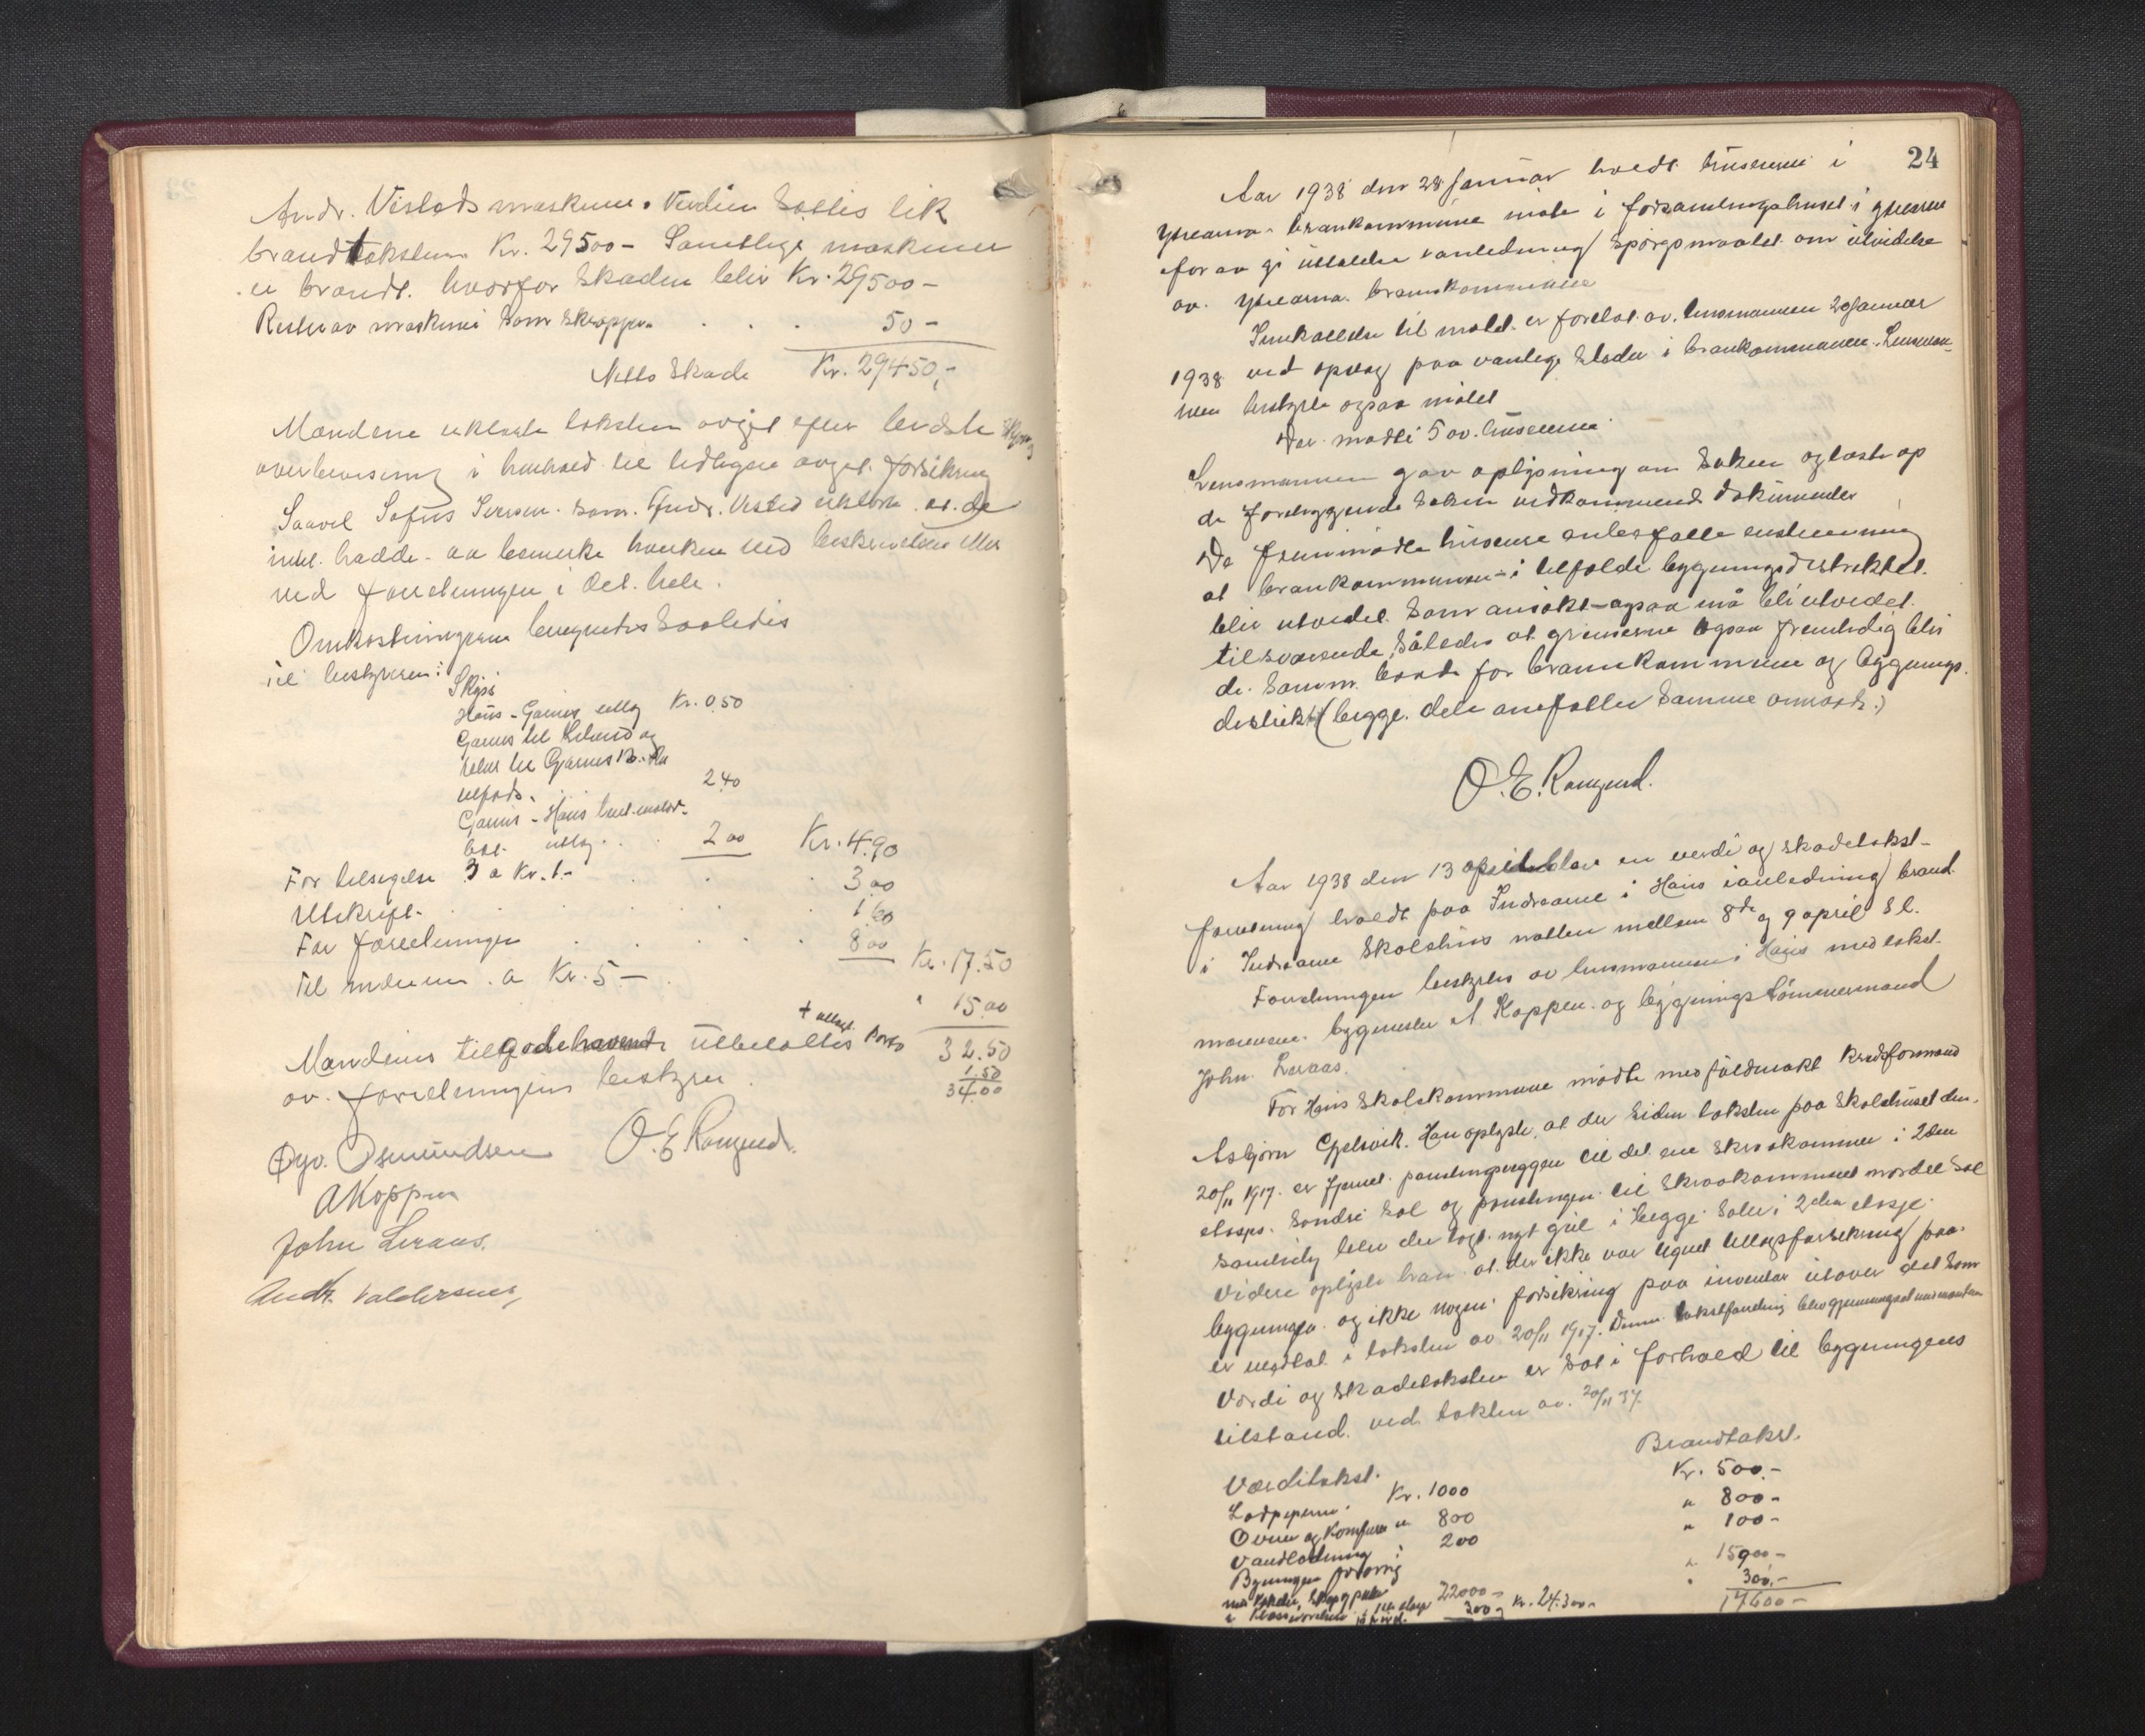 Andr. Vestads maskiner. Verdien sættes lik
brandtaksten Kr. 29500 - Samtlige maskiner
er brændt. hvorfor skaden blir Kr. 29500 -
Rester av maskiner som skrapjern . . . 50 -
Netto skade Kr. 29450,-
Mændene erklærte taksten avgit efter bedste skjøn og
overbevisning i henhold til tidligere avgit forsikring
Saavel Sofus Iversen som Andr. Vestad erklærte at de
intet hadde aa bemerke hverken ved beskrivelsen eller
ved forretningen i det hele.
Omkostningerne beregnedes saaledes
til bestyreren:
Skyss
Haus - Garnes utlæg Kr. 0.50
Garnes til
retur til Garnes
tilfods. 2.40
Garnes - Haus
utlæg . . 2.00 Kr. 4.90
For tilsigelse 3 a Kr. 1.- . . . 3.00
Utskrift . . . . . 1.60
For forretningen . . . . 8.00 Kr. 17.50
Til mændene a Kr. 5 - " 15.00
Mændenes tilgodehavende utbetaltes + utlagt Porto 32.50
av forretningens bestyrer. 1.50
34.00
Øyv. Osmundsen O. E. Romsund.
A Koppen
John Leraas.
Andr. Valdersnes,
24
Aar 1938 den 28 januar holdt huseierne i
Ytrearna brankommune møte i forsamlingshuset i Ytrearna
for aa gi uttalelse i anledning spørgsmaalet om utvidelse
av Ytrearna brannkommune
Innkallelse til møtet er foretat av lensmannen 20 januar
1938 ved opslag paa vanlige steder i brankommunen. Lensman-
nen bestyrte ogsaa møtet
Der møtte 5 av huseierne.
Lensmannen gav oplysning om saken og læste op
de foreliggende saken vedkommende dokumenter
De fremmøtte huseiere anbefalte enstemmig
at brankommunen i tilfælde bygningsdistriktet
blir utvidet som ansøkt - ogsaa må bli utvidet
tilsvarende, således at grensene ogsaa fremtidig blir
de samme baade for brannkommune og bygnings-
distrikt (begge dele anefaller samme område.)
O. E. Romsund.
Aar 1938 den 13 april blev en verdi og skadetakst-
forretning holdt paa Indrearne i Haus i anledning brand
i Indrearne Skolehus natten mellem 8de og 9 april d. l.
Forretningen bestyrtes av lensmannen i Haus med takst-
mænnene bygmester A Koppen og bygningstømmermand
John Leraas.
For Haus Skolekommune møtte med fuldmakt kredsformand
Asbjørn Gjelsvik. Han oplyste, at der siden taksten paa skolehuset den
20/11 1917 er fjernet panelingsveggen til det ene skraakammer i 2den
etasje. søndre sal og panelingen til skraakammeret nordre sal
samtidig blev der lagt nyt gulv i begge saler i 2den etasje.
Videre oplyste han at der ikke var tegnet tillægsforsikring paa
bygningen og ikke nogen forsikring paa inventar utover det som
er medtat i taksten av 20/11 1917. Denne takstforretning blev gjennemgaat av
Verdi og skadetaksten er sat i forhold til bygningens
tilstand ved taksten av 20/11 37.
Værditakst. Brandtakst.
Lodpiperne. Kr. 1000 Kr. 500.-
Ovner og Komfurer " 800 " 800 -
Vandledning : 200 " 100 -
Bygningen forøvrig
22000 - " 15900 -
300 - Kr. 24.300 - " 300,-
17600 -